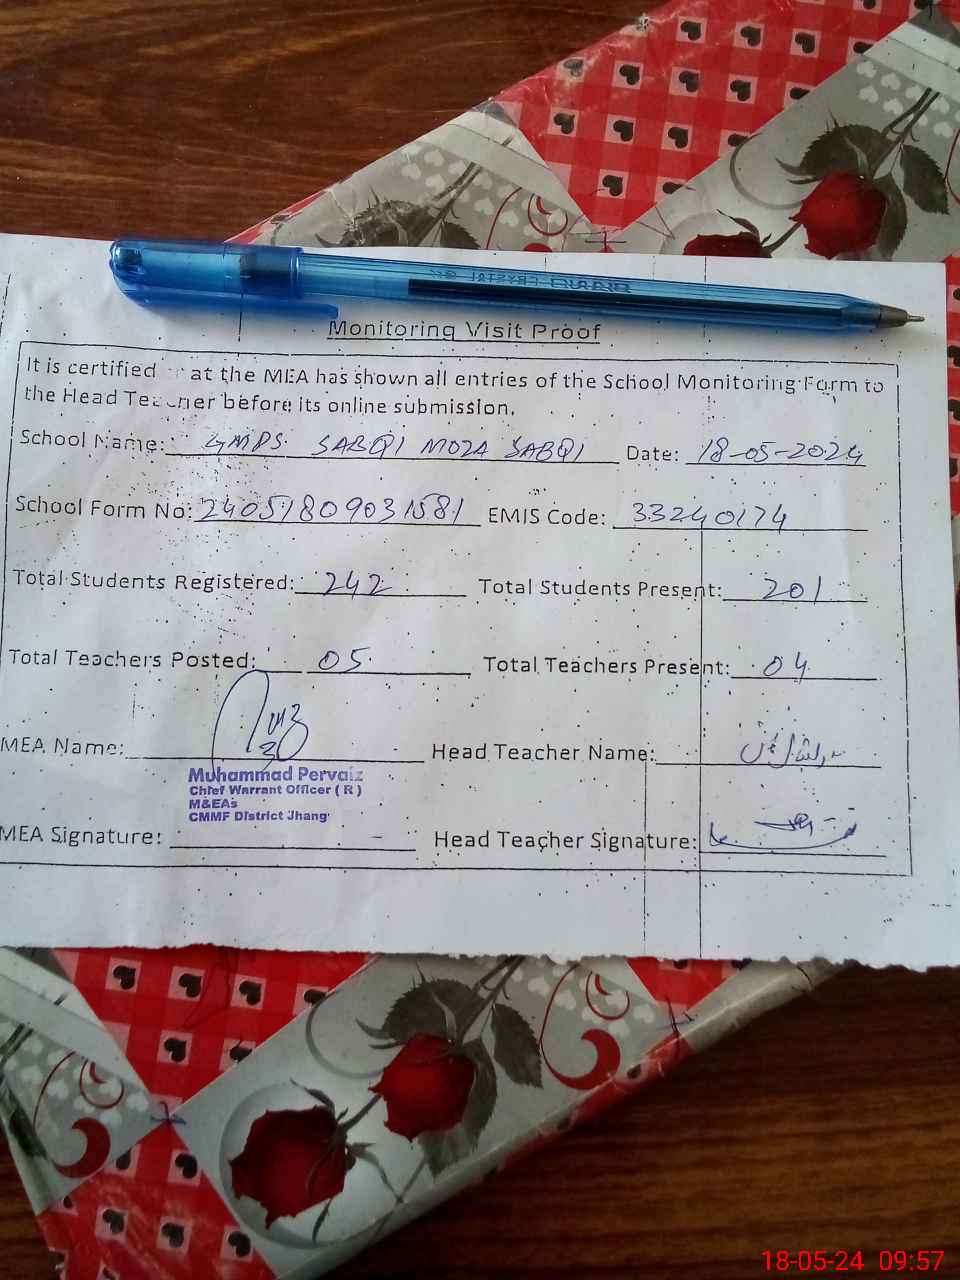 CRYSTAL
Monitoring Visit Proof
It is certified at the MEA has shown all entries of the School Monitoring Form to
the Head Teacher before its online submission.
School Name: GMPS SABQI MOZA SABQI Date: 18-05-2024
School Form No: 24051809031581 EMIS Code: 33240174
Total Students Registered: 242 Total Students Present: 201
Total Teachers Posted: 05 Total Teachers Present: 04
MEA Name: Head Teacher Name:
Muhammad Pervaiz
Chief Warrant Officer ( R )
M&EAs
CMMF District Jhang
MEA Signature: Head Teacher Signature:
18-05-24 09:57